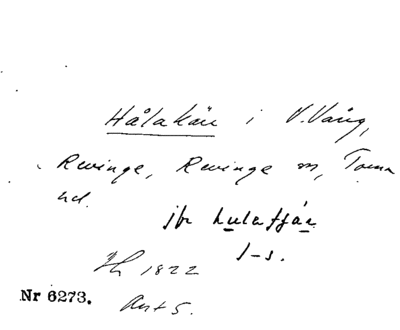 Hålakär i V. Vång,
Rwinge, Rwinge sn, Torna
hd.
jfr hulatjär
1-s.
1822
Nr 6273. Ant 5.